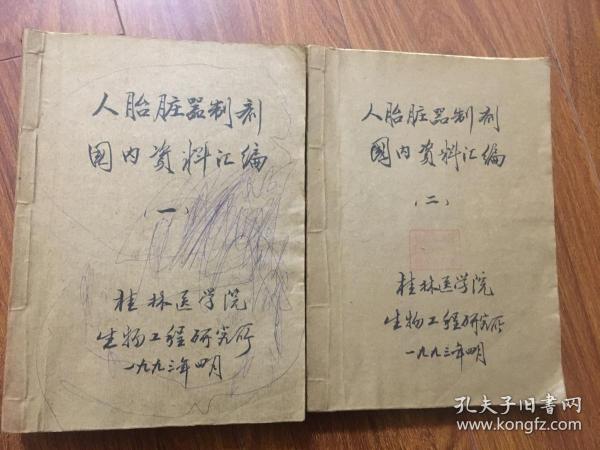 人胎脏器制剂
国内资料汇编
（一）
桂林医学院
生物工程研究所
一九九三年四月
人胎脏器制剂
国内资料汇编
（二）
桂林医学院
生物工程研究所
一九九三年四月
孔夫子旧书网
www.kongfz.com